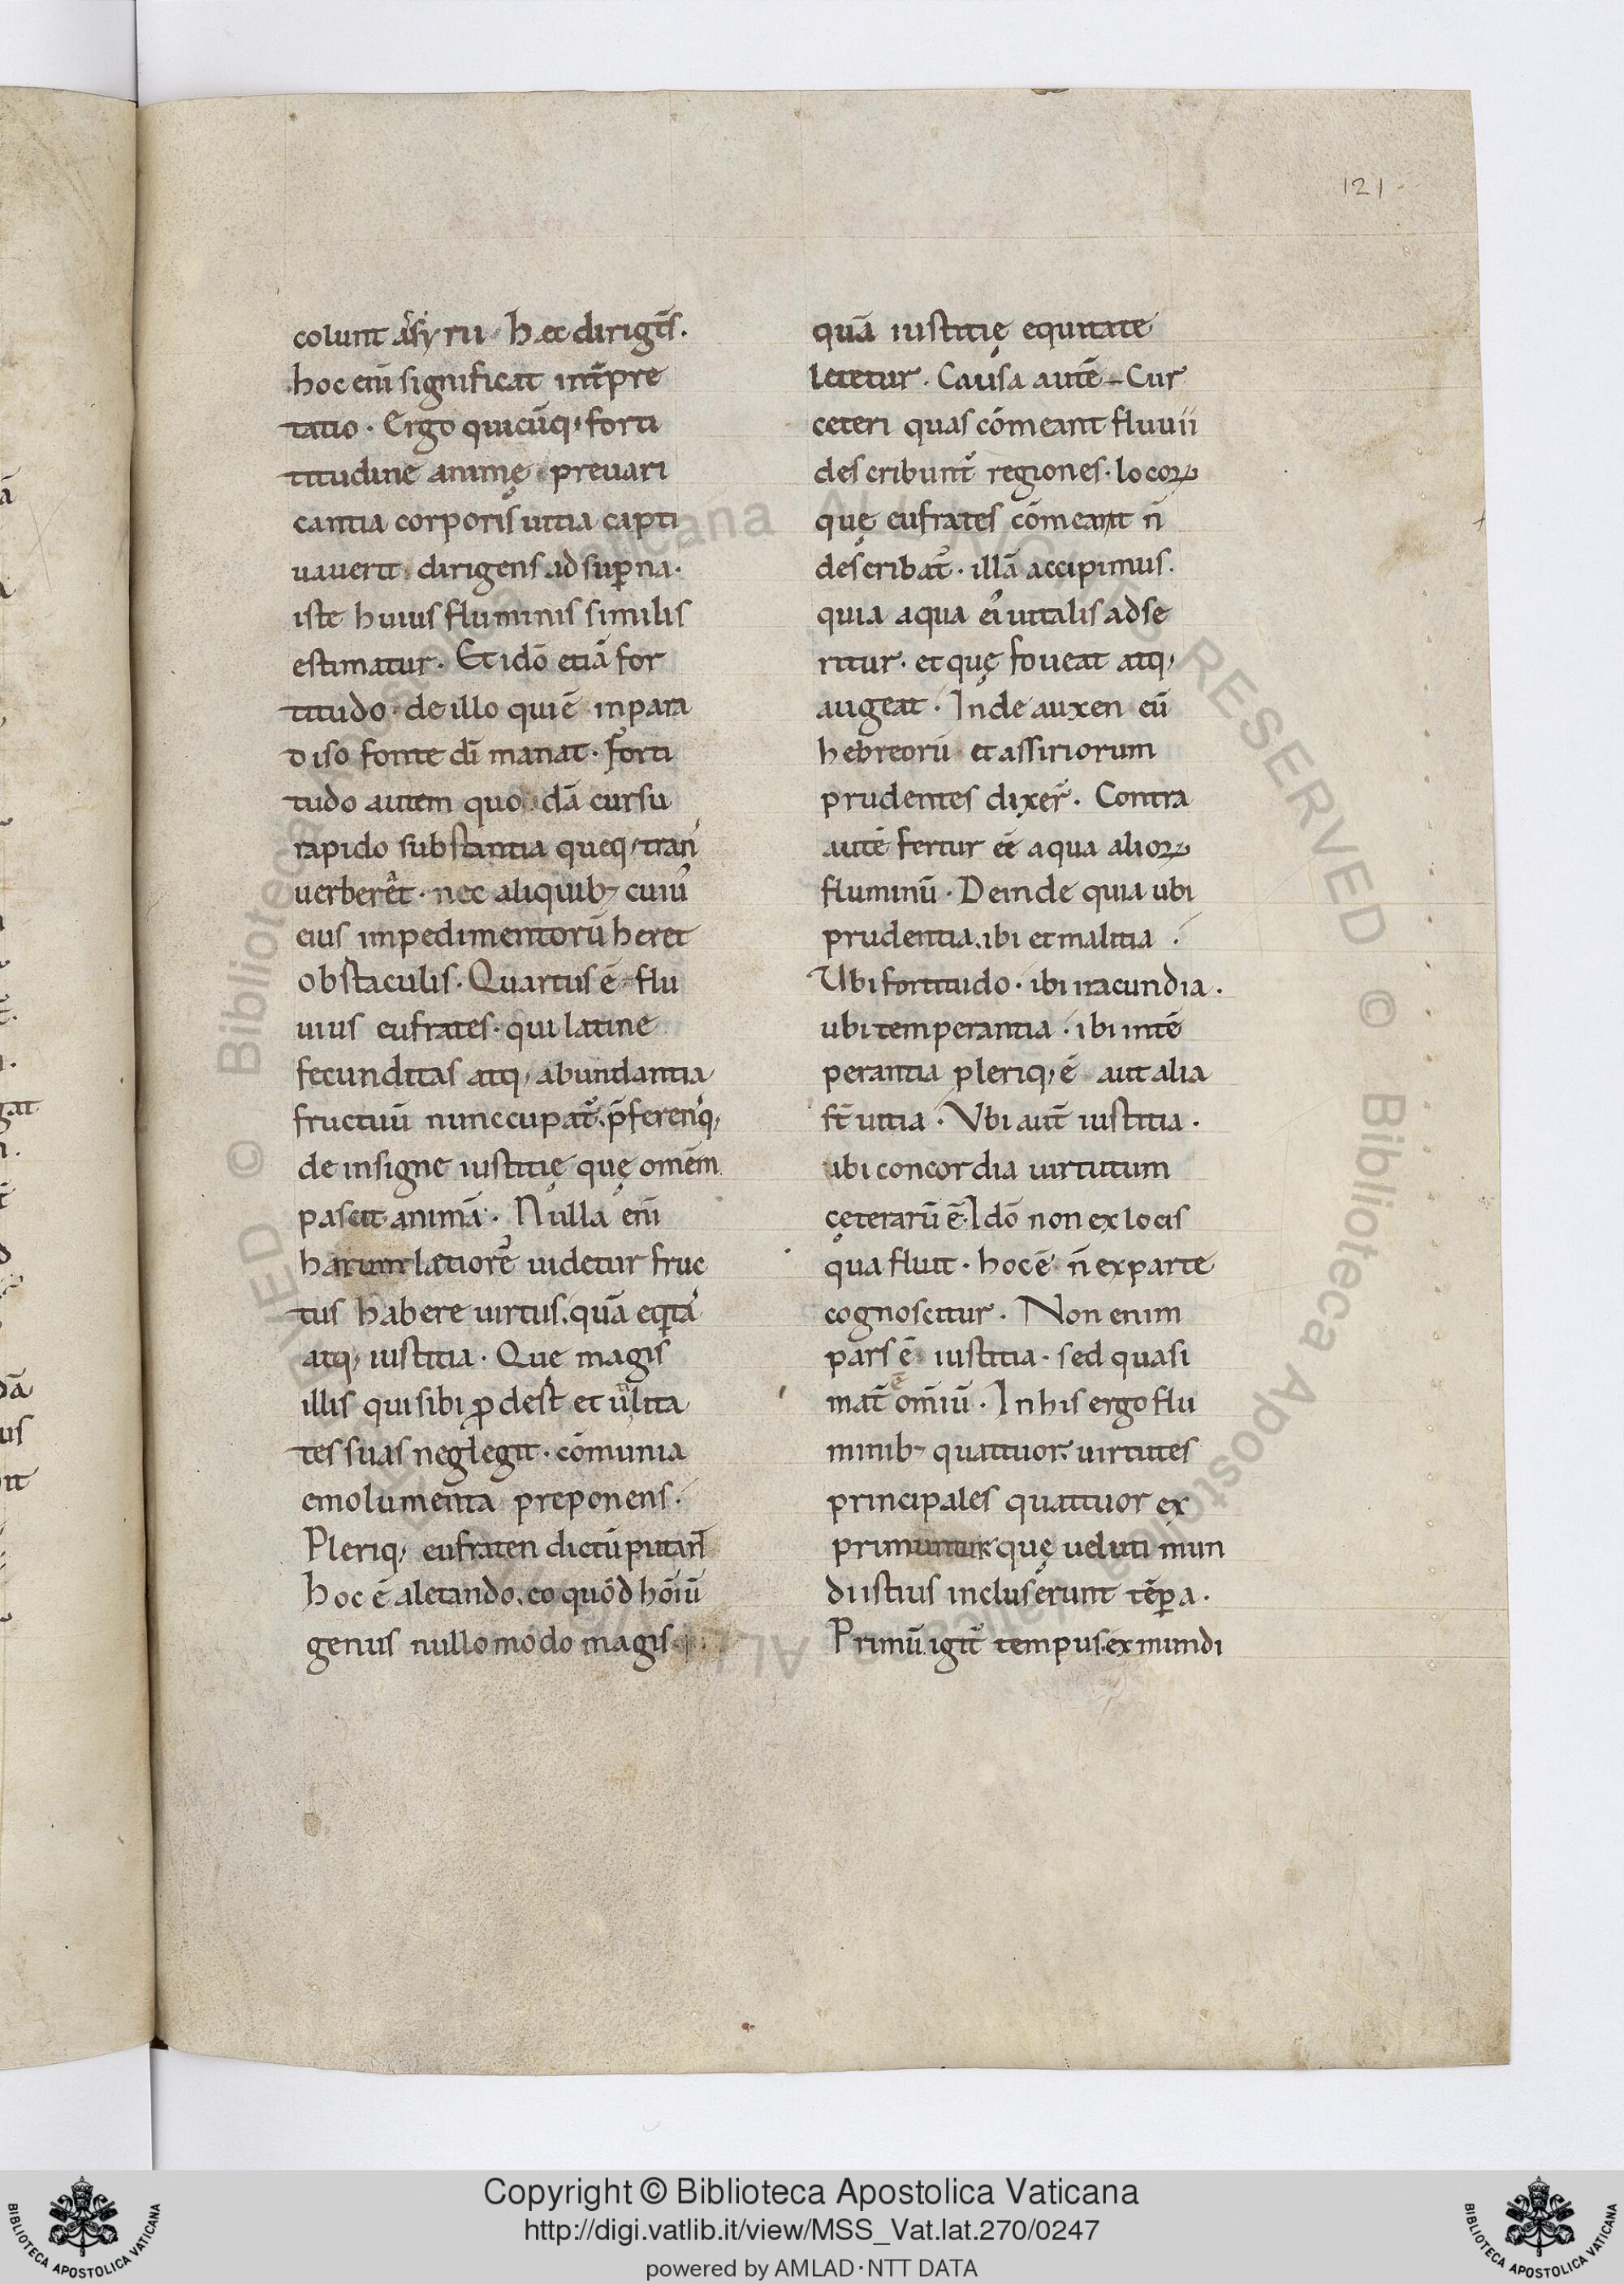 121
colunt aſſyrii · hęc dirigēs.
hoc enī significat int̄pre
tatio · Ergo quicūq; forti
titudine animę preuari
cantia corporis uitia capti
uauerit dirigens ad sup̄na·
iste huius fluminis similis
estimatur · Et idō etiā for
titudo · de illo qui ē in para
diso fonte dī manat · forti
tudo autem quodā cursu
rapido substantia queq; tran
uerberet · nec aliquib; cuiuꝰ
eius impedimentorū heret
obstaculis · Quartus ē flu
uius eufrates · qui latine
fecunditas atq; abundantia
fructuū nunccupat᷑ · p̄ferenq;
de insigne iustitię quę omēm
pascit animā · Nulla enī
harum latiorē uidetur fruc
tus habere uirtus, quā eqͥtaͣ
atq; iustitia · Que magis
illis qui sibi ꝓdest et ulita
tes suas neglegit · cōmunia
emolumenta preponens ·
Pleriq; eufraten dictū putan̄
hoc ē aletando, eo quod hōīū
genus nullo modo magis
quā iustitię equitate
letetur · Causa autē Cur
ceteri quas cōmeant fluuii
describunt᷑ regiones · locoꝝ
quę eufrates cōmeant n̄
describat᷑ · illā accipimus.
quia aqua eiꝰ uitalis adse
ritur · et quę foueat atq;
augeat · Inde auxen eū
hebreorū et assiriorum
prudentes dixer̄ · Contra
autē fertur eē aqua alioꝝ
fluminū · Deinde quia ubi
prudentia, ibi et malitia ·
Ubi fortitudo · ibi iracundia ·
ubi temperantia · ibi intē
perantia pleriq; ē aut alia
st̄ uitia · Ubi aut̄ iustitia ·
ubi concordia uirtutum
çeterarū ē · Idō non ex locis
qua fluit · hoc ē n̄ ex parte
cognoscitur · Non enim
pars ē iustitia · sed quasi
mat̄ ē omīū · In his ergo flu
minib; quattuor, uirtutes
principales quattuor ex
primuntur quę ueluti mun
di istius incluserunt tēpͣa ·
Primū igit᷑ tempus, ex mundi
Copyright © Biblioteca Apostolica Vaticana
http://digi.vatlib.it/view/MSS_Vat.lat.270/0247
powered by AMLAD·NTT DATA
BIBLIOTECA APOSTOLICA VATICANA
BIBLIOTECA APOSTOLICA VATICANA